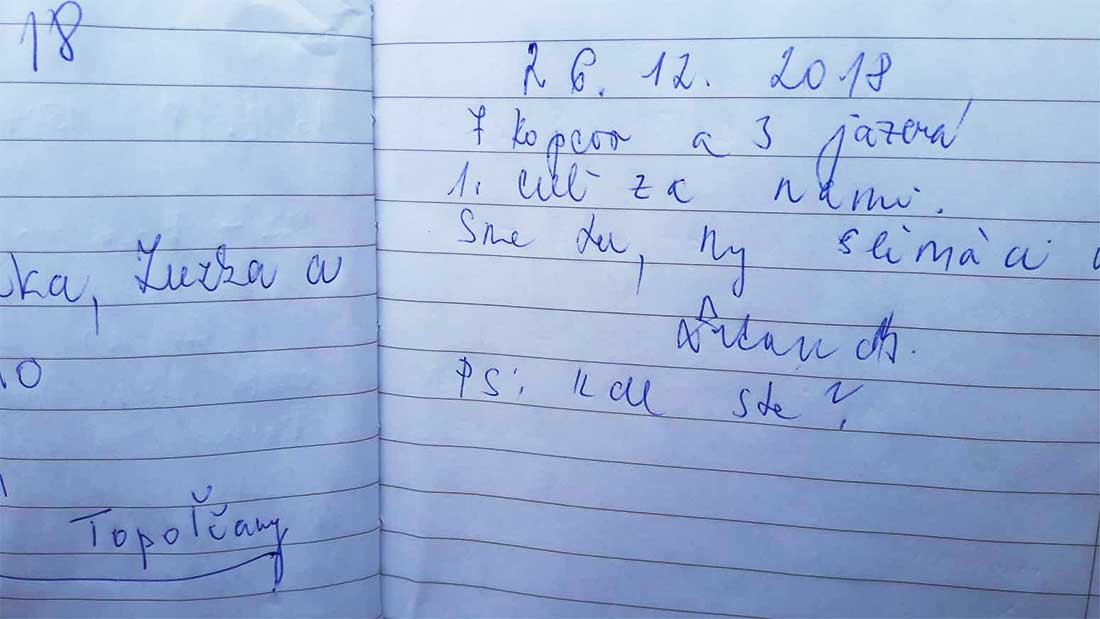 18
ka, Zuzka a
10
Topoľčany
26. 12. 2018
7 kopcov a 3 jazerá
1. cieľ za nami.
Sme tu, my slimáci
PS: Kde ste?